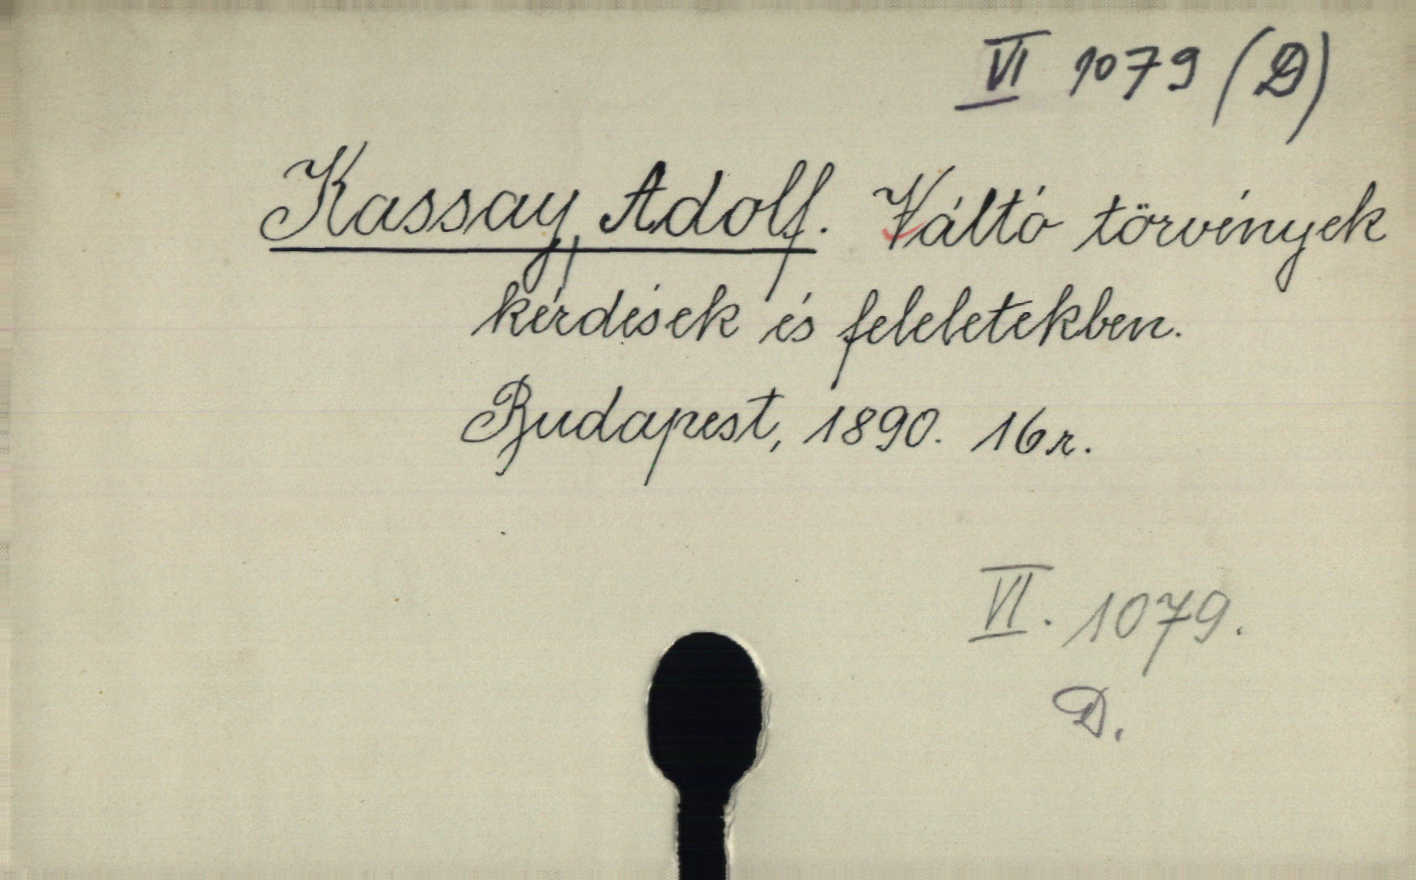 VI 1079 (D)
Kassay, Adolf. Váltó törvények
kérdések és feleletekben.
Budapest, 1890. 16r.
VI. 1079.
D.